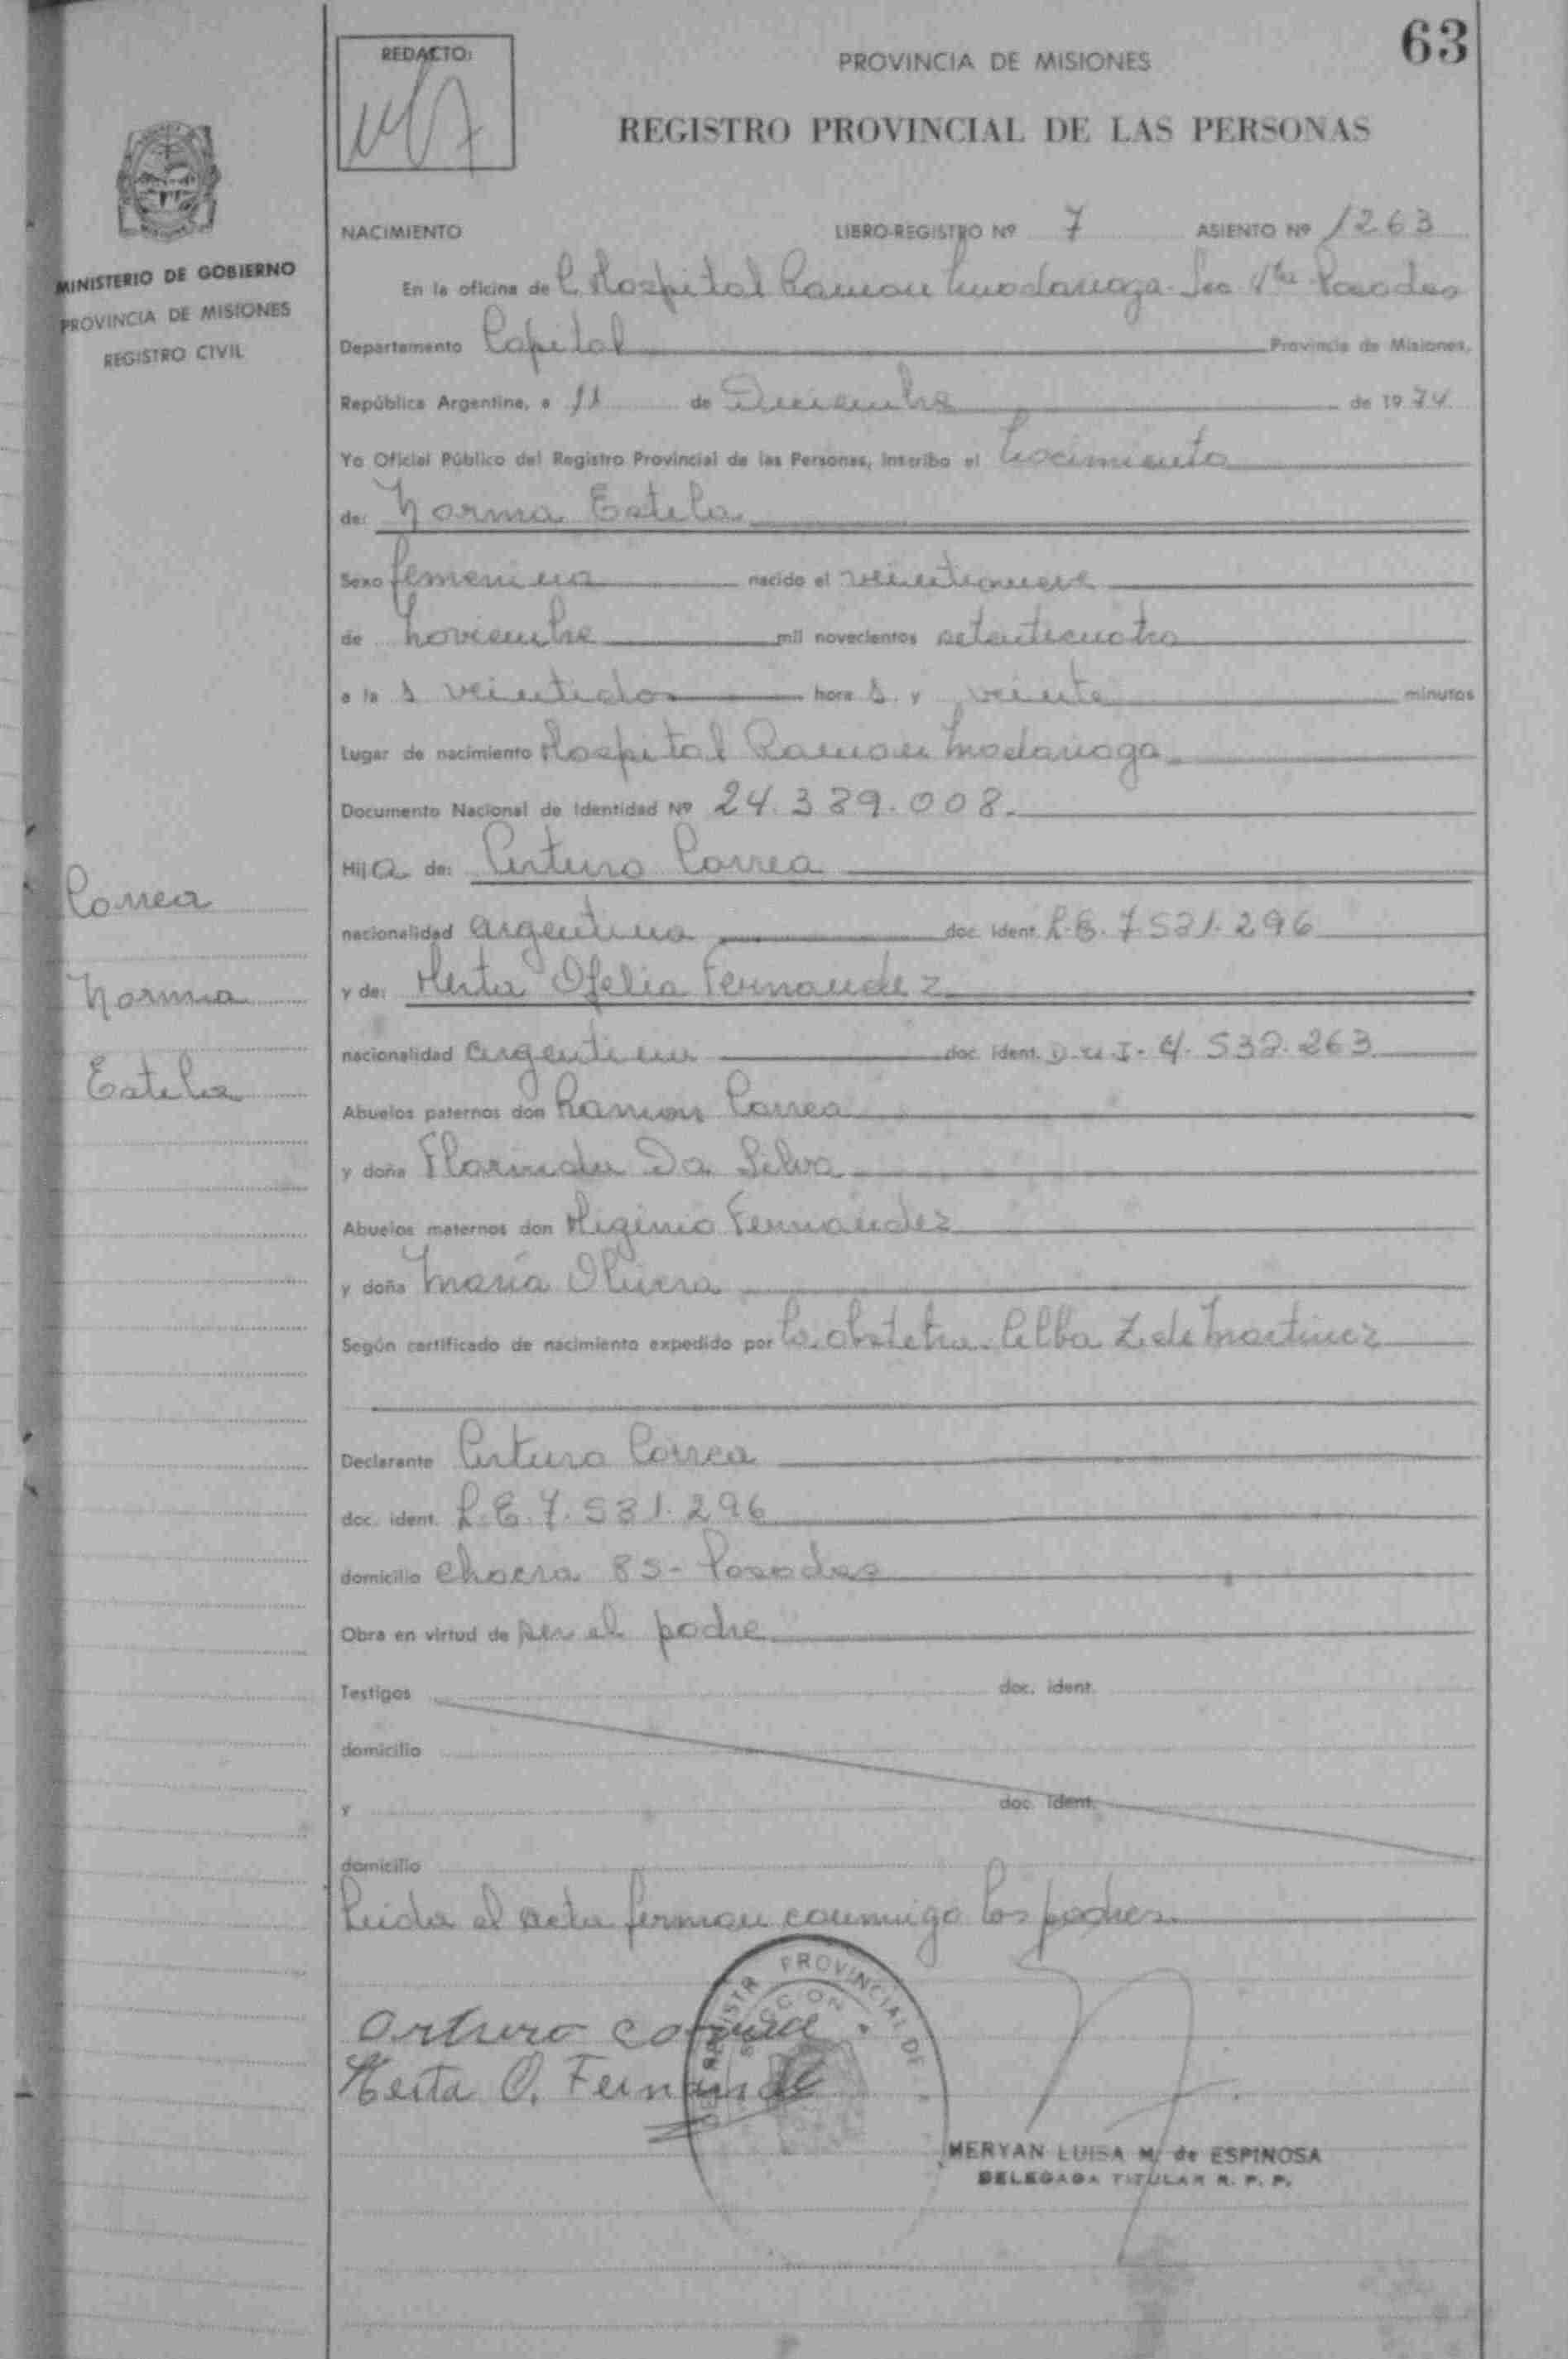 63
REDACTO:
PROVINCIA DE MISIONES
REGISTRO PROVINCIAL DE LAS PERSONAS
MINISTERIO DE GOBIERNO
PROVINCIA DE MISIONES
REGISTRO CIVIL
NACIMIENTO LIBRO-REGISTRO Nº 7 ASIENTO Nº 1263
En la oficina de Hospital Ramon Madariaga Posadas
Departamento Capital Provincia de Misiones,
República Argentina, a 11 de Diciembre de 1974
Yo Oficial Público del Registro Provincial de las Personas, inscribo el Nacimiento
de: Norma Estela
Sexo femenino nacido el veintinueve
de Noviembre mil novecientos setenticuatro
a la s veintidos hora s y veinte minutos
Lugar de nacimiento Hospital Ramon Madariaga
Documento Nacional de Identidad Nº 24.389.008.
Hija de: Arturo Correa
Correa
nacionalidad argentina doc. ident. L.E. 7.531.296
Norma
y de: Herta Ofelia Fernandez
nacionalidad argentina doc. ident. D.N.I. 4.539.263
Estela
Abuelos paternos don Ramon Correa
y doña Florinda Da Silva
Abuelos maternos don Higinio Fernández
y doña María Olivera
Según certificado de nacimiento expedido por la obstetra. Alba Z de Martinez
Declarante Arturo Correa
doc. ident. L.E. 7.531.296
domicilio chacra 85- Posadas
Obra en virtud de ser el padre
Testigos doc. ident.
domicilio
y doc. ident.
domicilio
Leida el acta firman conmigo los padres.
REGISTR PROVINCIAL DE
SECCION
Arturo correa
Herta O. Fernandez
MERYAN LUISA M. de ESPINOSA
DELEGADA TITULAR R. P. P.